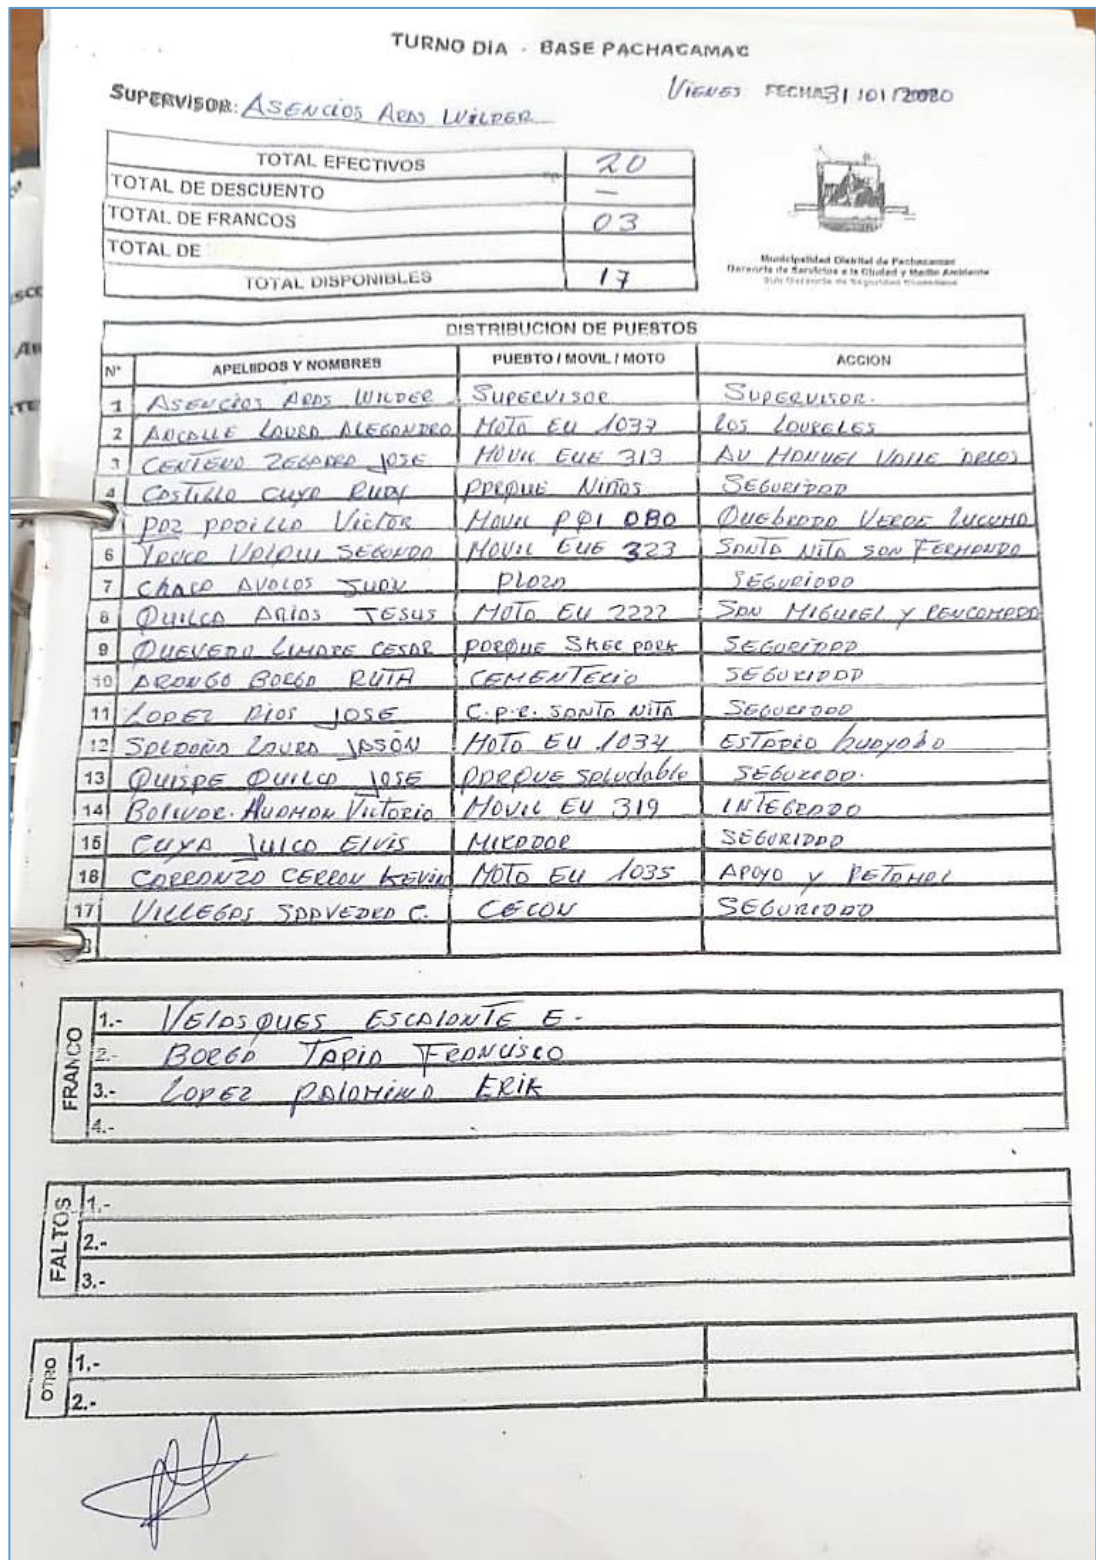 TURNO DIA - BASE PACHACAMAC
VIENES FECHA 31/01/2020
SUPERVISOR: ASENCIOS ARAS WILDER
TOTAL EFECTIVOS 20
TOTAL DE DESCUENTO —
TOTAL DE FRANCOS 03
TOTAL DE
TOTAL DISPONIBLES 17
Municipalidad Distrital de Pachacamac
Gerencia de Servicios a la Ciudad y Medio Ambiente
Sub Gerencia de Seguridad Ciudadana
DISTRIBUCION DE PUESTOS
N° APELIIDOS Y NOMBRES PUESTO / MOVIL / MOTO ACCION
1 ASENCIOS ARAS WILDER SUPERVISOR SUPERVISOR.
2 LAURA ALEGANDRO MOTO EU 1037 LOS LAURELES
3 CENTENO ZEGARRA JOSE MOVIL EUE 313 AV MANUEL VALLE
4 CASTILLO CUYA RUDY PARQUE NIÑOS SEGURIDAD
PAZ PADILLA Victor MOVIL PQI 080 QUEBRADA VERDE LUCUMO
6 YAUCA SEGUNDO MOVIL EUE 323 SANTA NITA SAN FERNANDO
7 CHACO AVALOS JUAN PLAZA SEGURIDAD
8 QUILCA ARIAS JESUS MOTO EU 2222 SAN MIGUEL Y
9 QUEVEDO CESAR PARQUE SKEE PARK SEGURIDAD
10 ARONGO BORGA RUTH CEMENTERIO SEGURIDAD
11 LOPEZ RIOS JOSE C.P.R. SANTA NITA SEGURIDAD
12 SALDAÑA LAURA JASÓN MOTO EU 1034 ESTADIO
13 QUISPE QUILCA JOSE PARQUE Saludable SEGURIDAD.
14 BOLIVAR HUAMAN Victoria MOVIL EU 319 INTEGRADO
15 CUYA JULCA ELVIS MIRADOR SEGURIDAD
16 CARRANZA CERRON KEVIN MOTO EU 1035 APOYO Y RETAMAL
17 VILLEGAS SAAVEDRA C. CECON SEGURIDAD
FRANCO
1.- VELASQUES ESCALANTE E.
2.- BORGA TAPIA FRANCISCO
3.- LOPEZ PALOMINO ERIK
4.-
FALTOS
1.-
2.-
3.-
OTRO
1.-
2.-